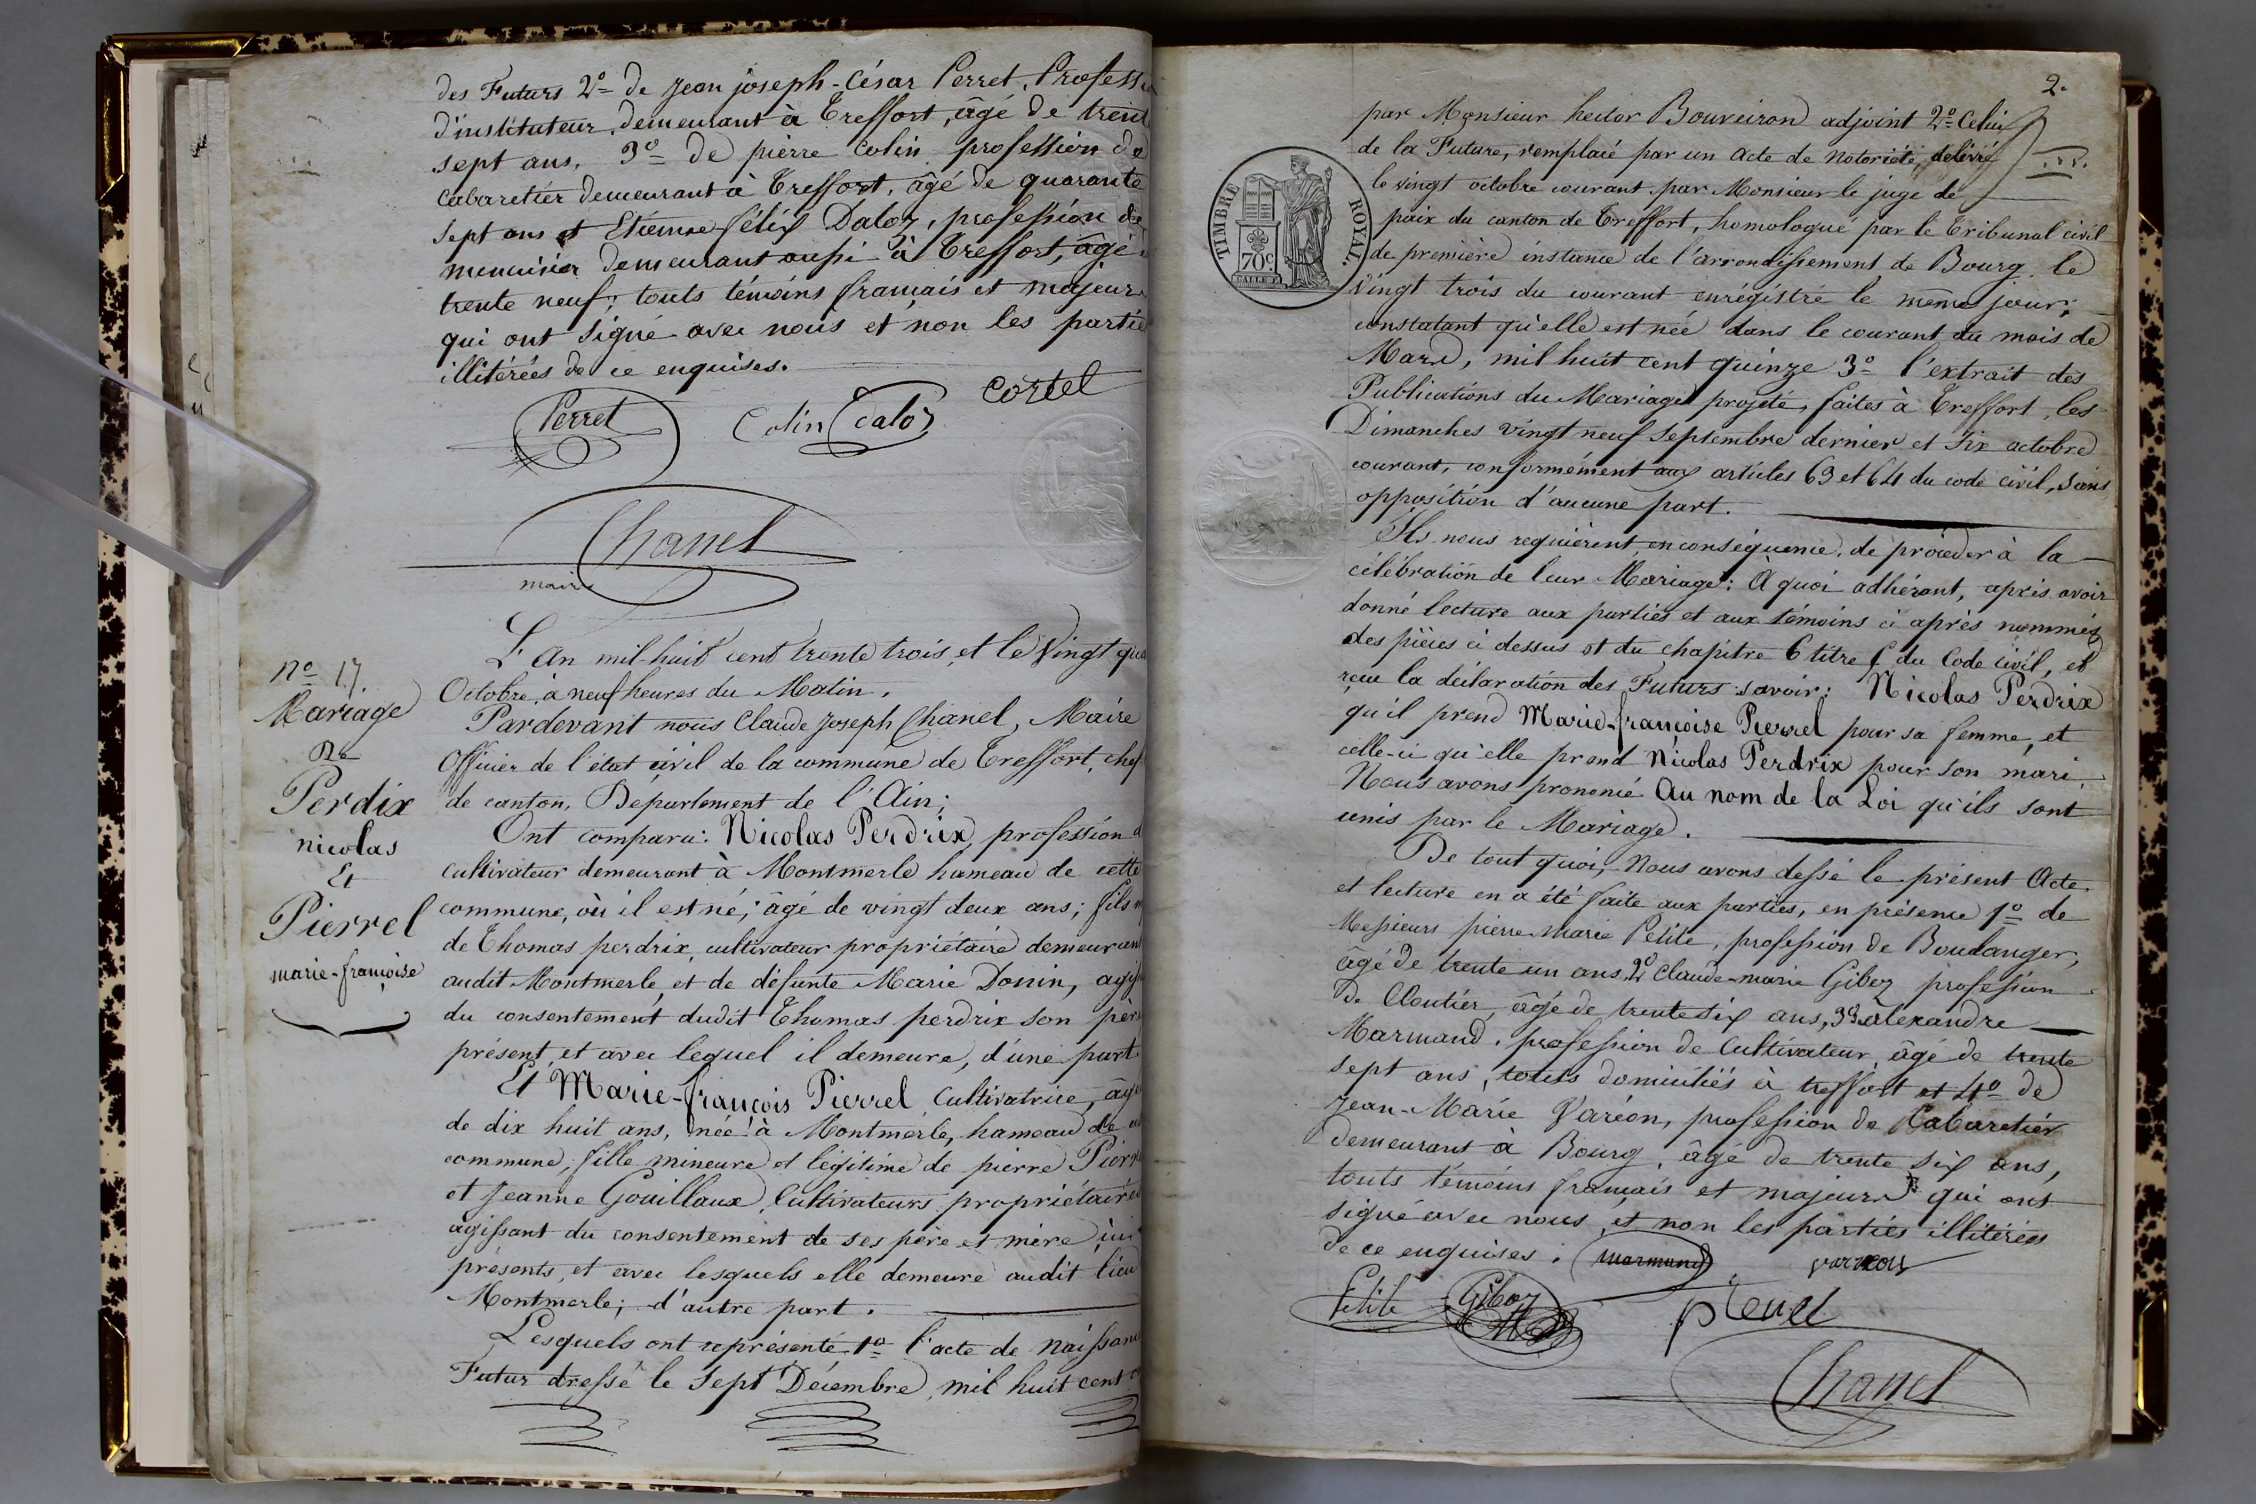 des Futurs 2º de jean joseph-César Perret, Profess
d'instituteur, demeurant à Treffort, âgé de trent
sept ans, 3º de pierre Colin profession de
Cabaretier demeurant à Treffort, âgé de quarante
sept ans et Etienne félix Daloz, profession de
menuisier demeurant aussi à Treffort, âgé
trente neuf; touts témoins français et majeurs
qui ont signé avec nous et non les partie
illitérées de ce enquises.
Perret Colin Daloz Cortel
Chanel
maire
nº 17.
Mariage
De
Perdix
nicolas
Et
Pierrel
marie-françoise
L'An mil-huit cent trente trois, et le Vingt qua
Octobre, à neuf heures du Matin.
Pardevant nous Claude Joseph Chanel, Maire
Officier de l'état civil de la commune de Treffort, chef
de canton, Département de l'Ain;
Ont comparu: Nicolas Perdrix, profession d
cultivateur demeurant à Montmerle hameau de cette
commune, où il est né; âgé de vingt deux ans; fils m
de Thomas perdrix, cultivateur propriétaire demeurant
audit Montmerle, et de défunte Marie Donin, agiss
du consentement dudit Thomas perdrix son père
présent, et avec lequel il demeure, d'une part.
Et Marie-françois Pierrel Cultivatrice, âgé
de dix huit ans, née à Montmerle, hameau de
commune; fille mineure et légitime de pierre Pierre
et Jeanne Gouillaux, Cultivateurs propriétaires
agissant du consentement de ses père et mère ici
présents, et avec lesquels elle demeure audit lieu
Montmerle; d'autre part.
Lesquels ont représenté 1º l'acte de Naissan
Futur dressé le sept Décembre, mil huit cent
2.
TIMBRE ROYAL.
70 c.
par Monsieur hector Bouveiron adjoint 2º Celui
de la Future, remplacé par un acte de Notoriété, delivré
le vingt octobre courant par Monsieur le juge de
paix du canton de Treffort, homologué par le Tribunal civil
de première instance de l'arrondissement de Bourg, le
vingt trois du courant enrégistré le même jour;
constatant qu'elle est née dans le courant du mois de
Mars, mil huit cent quinze 3º l'extrait des
Publications du Mariage projeté, faites à Treffort, les
Dimanches vingt neuf Septembre dernier et Six octobre
courant, conformément aux articles 63 et 64 du code civil, sans
opposition d'aucune part.
Ils nous requièrent, en conséquence, de procéder à la
célébration de leur Mariage: À quoi adhérant, après avoir
donné lecture aux parties et aux témoins ci après nommés
des pièces ci dessus et du chapitre 6 titre 5 du Code civil, et
reçu la déclaration des Futurs savoir: Nicolas Perdrix
qu'il prend Marie-françoise Pierrel pour sa femme, et
celle-ci qu'elle prend Nicolas Perdrix pour son mari
Nous avons prononcé Au nom de la Loi qu'ils sont
unis par le Mariage.
De tout quoi, Nous avons dessé le présent Acte
et lecture en a été faite aux parties, en présence 1º de
Messieurs pierre Marie Petite, profession de Boulanger,
âgé de trente un ans, 2º Claude-marie Giboz profession
de Cloutier, âgé de trente six ans, 3º alexandre
Marmand, profession de Cultivateur, âgé de trente
sept ans, touts domiciliés à treffort et 4º de
Jean-Marie Varéon, profession de Cabaretier
demeurant à Bourg, âgé de trente six ans,
touts témoins français et majeurs qui ont
signé avec nous, et non les parties illitérées
de ce enquises. marmand vareon
Petite Giboz
Chanel